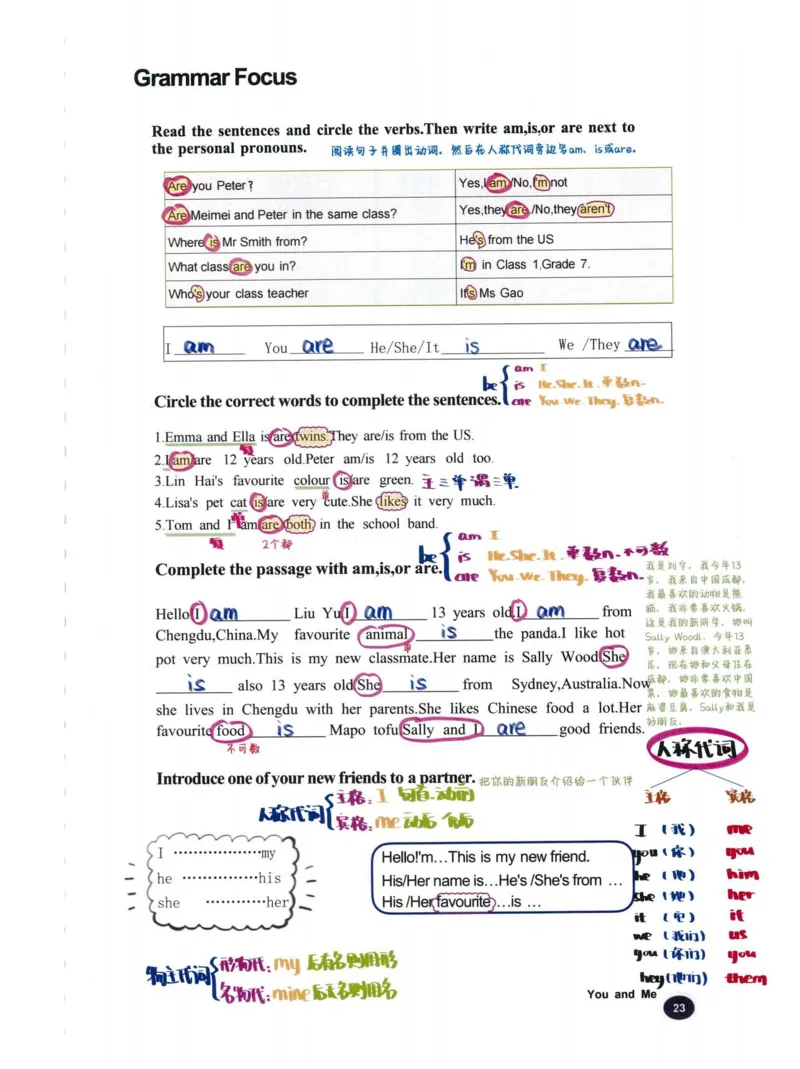 Grammar Focus
Read the sentences and circle the verbs.Then write am,is,or are next to
the personal pronouns. 阅读句子并圈出动词。然后在人称代词旁边写am、is或are。
Are you Peter? Yes,I am/No,I'm not
Are Meimei and Peter in the same class? Yes,they are /No,they aren't
Where is Mr Smith from? He's from the US
What class are you in? I'm in Class 1,Grade 7.
Who's your class teacher It's Ms Gao
I am You are He/She/It is We /They are
be { am I
is He.She.It.单数n.
are You.We.They.复数n.
Circle the correct words to complete the sentences.
1.Emma and Ella is/are twins.They are/is from the US.
复
2.I am/are 12 years old.Peter am/is 12 years old too.
3.Lin Hai's favourite colour is/are green. 主三单谓三单
4.Lisa's pet cat is/are very cute.She likes it very much.
单
5.Tom and I am/are both in the school band.
复 2个都
be { am I
is He.She.It.单数n.不可数
are You.We.They.复数n.
Complete the passage with am,is,or are.
Hello!I am Liu Yu.I am 13 years old.I am from
Chengdu,China.My favourite animal is the panda.I like hot
单
pot very much.This is my new classmate.Her name is Sally Wood.She
is also 13 years old.She is from Sydney,Australia.Now
she lives in Chengdu with her parents.She likes Chinese food a lot.Her
favourite food is Mapo tofu.Sally and I are good friends.
不可数
我是刘宇。我今年13
岁。我来自中国成都。
我最喜欢的动物是熊
猫。我非常喜欢火锅。
这是我的新同学。她叫
Sally Wood。今年13
岁。她来自澳大利亚悉
尼。现在她和父母住在
成都。她非常喜欢中国
菜。她最喜欢的食物是
麻婆豆腐。Sally和我是
好朋友。
Introduce one of your new friends to a partner. 把你的新朋友介绍给一个伙伴
人称代词 { 主格:I 句首.动前
宾格:me 动后 介后
I ………………my
he ……………his
she …………her
Hello!'m…This is my new friend.
His/Her name is…He's /She's from …
His /Her favourite …is …
人称代词
主格 宾格
I (我) me
you (你) you
he (他) him
she (她) her
it (它) it
we (我们) us
you (你们) you
hey(他们) them
物主代词 { 形物代:my 后有名则用形
名物代:mine 后无名则用名
You and Me
23